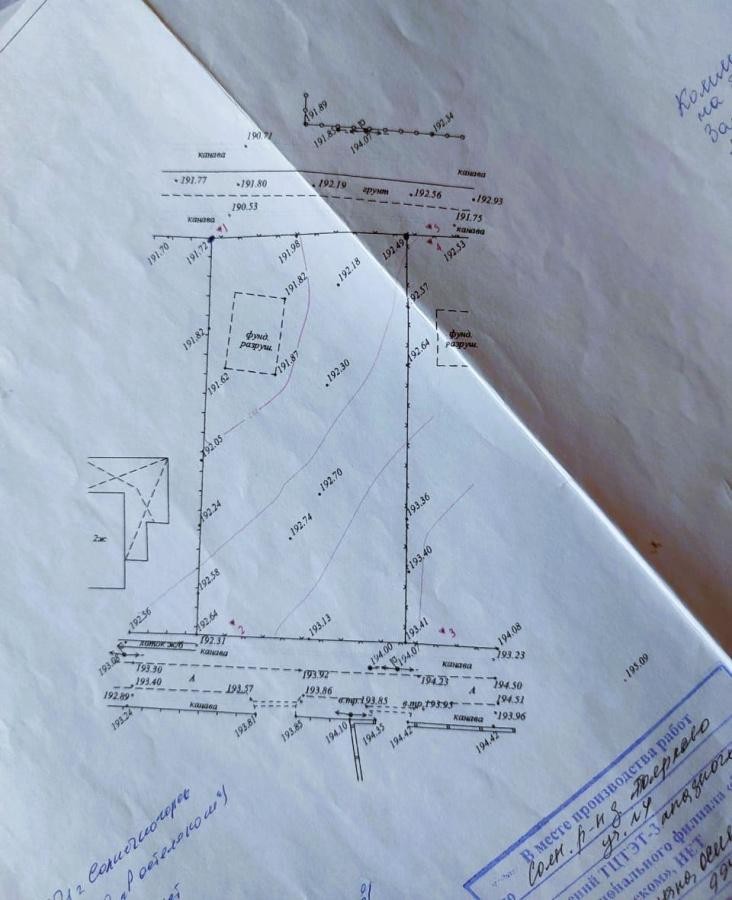 191.89
191.85
194.07
192.34
190.71
канава
канава
191.77
191.80
192.19
грунт
192.56
192.93
190.53
канава
191.75
канава
1
5
4
191.70
191.72
191.98
192.49
192.53
192.18
191.82
192.57
191.82
фунд.
разруш.
192.64
фунд.
разруш.
191.62
191.87
192.30
192.05
192.70
193.36
192.24
192.74
2ж
193.40
192.58
192.56
192.64
2
193.13
193.41
3
194.08
192.31
лоток ж/б
канава
193.08
194.00
194.07
канава
193.23
193.30
А
193.92
194.23
А
194.50
195.09
193.40
192.89
193.57
193.86
в.тр.193.85
в.тр.193.95
194.51
канава
193.24
193.81
193.85
194.10
194.35
194.42
канава
193.96
194.42
В месте производства работ
Солн. р-н д.
уч. №
ТЦТЭТ-3
филиала
НЕТ
г Солнечногорск
на
За